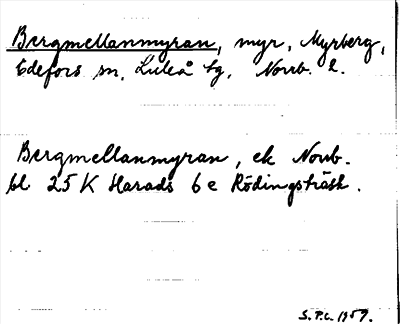 Bergmellanmyran, myr, Myrberg,
Edefors sn, Luleå tg, Norrb. l.
Bergmellanmyran, ek Norrb.
bl 25 K Harads 6 e Rödingsträsk.
S.P.C. 1959.